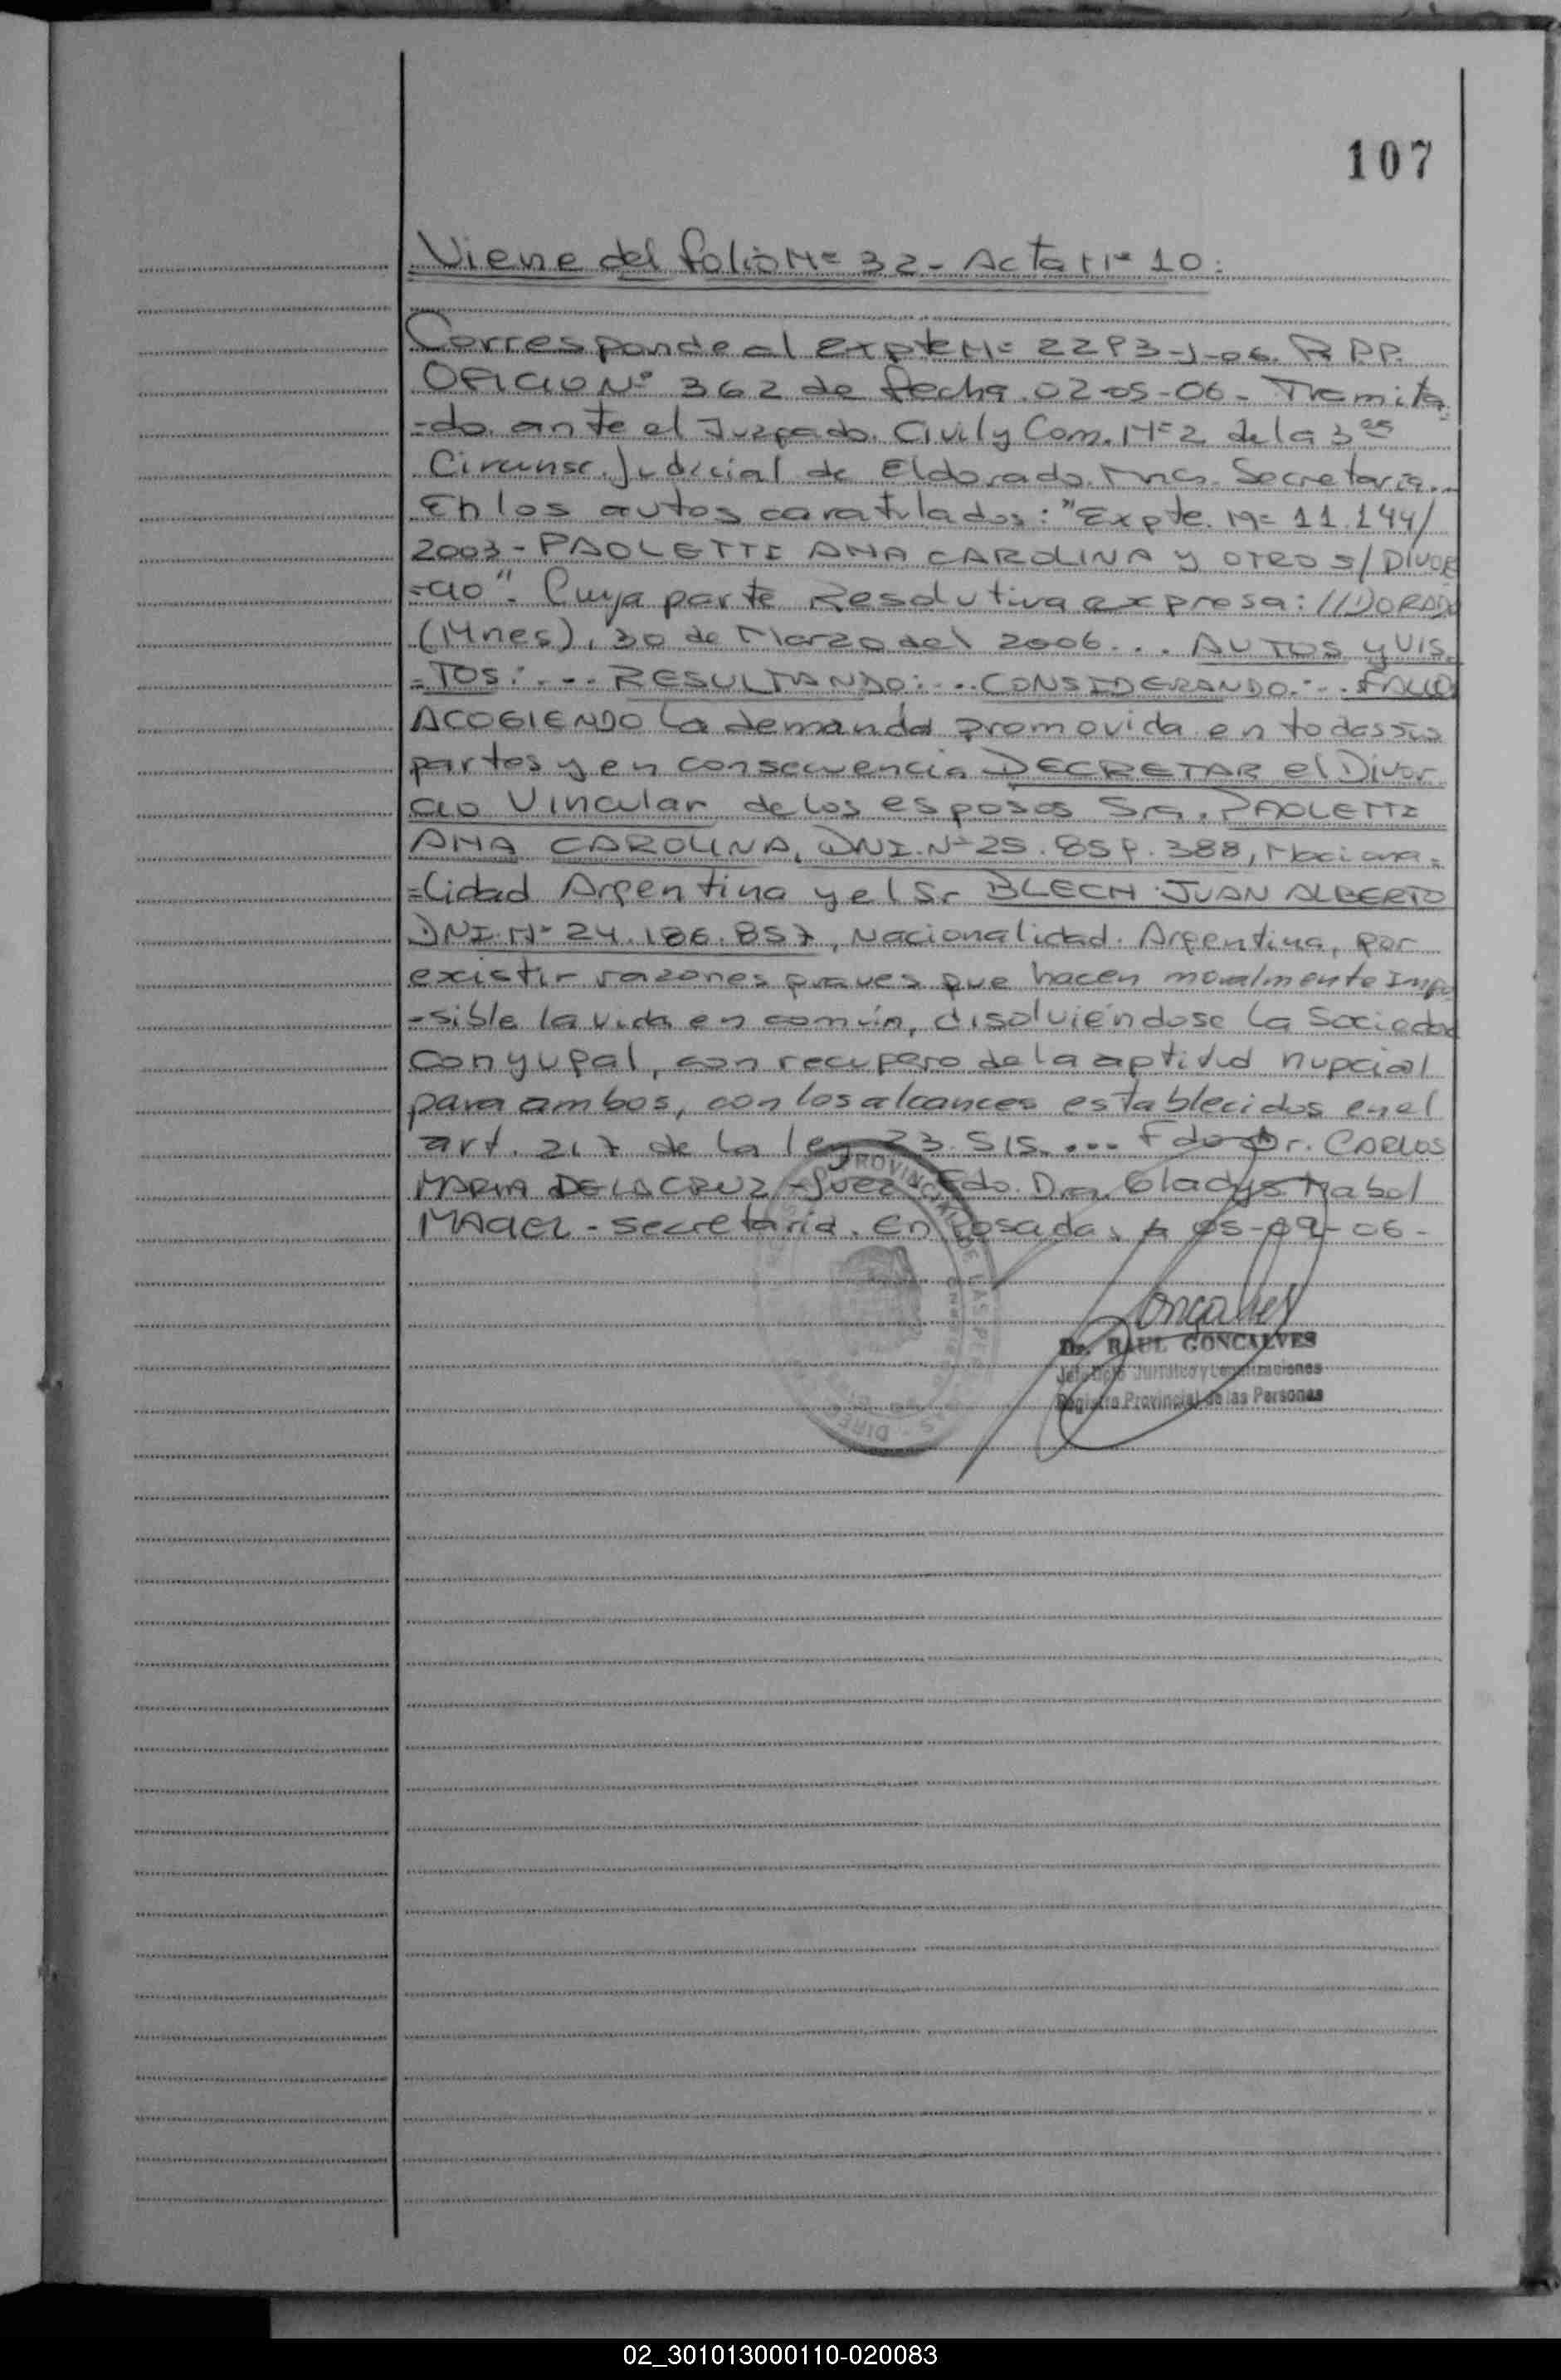 107
Viene del folio Nº 32 - Acta Nº 10:
Corresponde al expte Nº 2293-J-06. R.P.P.
OFICIO Nº 362 de fecha 02-05-06 - Tramita
=do ante el Juzgado Civil y Com. Nº 2 de la 3ª
Circunsc. Judicial de Eldorado. Mnes. Secretaria...
En los autos caratulados: "Expte. Nº 11.144/
2003 - PAOLETTI ANA CAROLINA Y OTRO S/ DIVOR
=cio". Cuya parte Resolutiva expresa: //DORADO
(Mnes), 30 de Marzo del 2006... AUTOS y VIS
=TOS:... RESULTANDO:... CONSIDERANDO:... FALLO
ACOGIENDO la demanda promovida en todas sus
partes y en consecuencia DECRETAR el Divor
cio Vincular de los esposos Sra. PAOLETTI
ANA CAROLINA, DNI. Nº 25.859.388, Naciona=
=lidad Argentina y el Sr BLECH JUAN ALBERTO
DNI. Nº 24.186.857, Nacionalidad Argentina, por
existir razones graves que hacen moralmente Impo
-sible la vida en común, disolviéndose la Sociedad
conyugal, con recupero de la aptitud nupcial
para ambos, con los alcances establecidos en el
art. 217 de la ley 23.515.... Fdo Dr. CARLOS
MARIA DE LA CRUZ - Juez Fdo. Dra. Gladys Mabel
- secretaria. En Posadas, a 05-09-06-
Dr. RAUL GONCALVES
Jefe Dpto Jurídico y Legalizaciones
Registro Provincial de las Personas
02_301013000110-020083